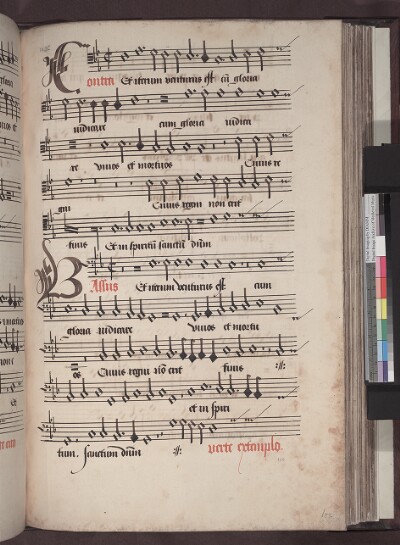 Contra Et iterum venturus est cū gloria
iudicare cum gloria iudica
re viuos et mortuos Cuius re
gni Cuius regni non erit
finis Et in spiritū sanctū dūm
Bassus Et iterum venturus est cum
gloria iudicare viuos et mortu
os Cuius regni nō erit finis
et in spiri
tum. sanctum dūm verte extemplo.